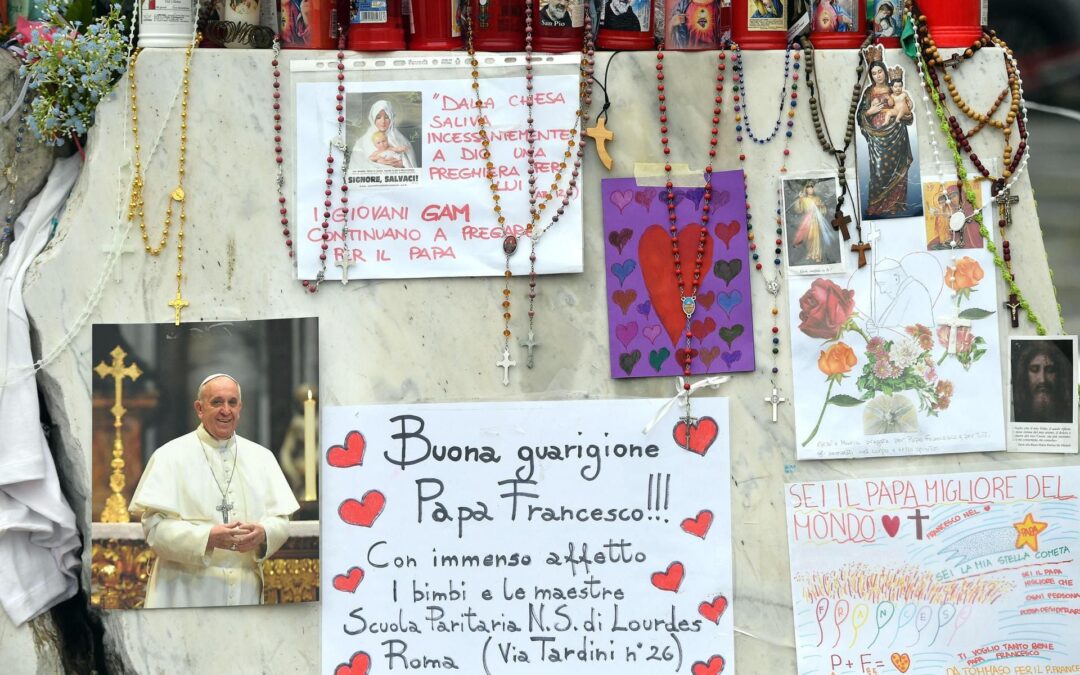 San Pio
"DALLA CHIESA
SALIVA
INCESSANTEMENTE
A DIO UNA
PREGHIERA PER
LUI
SIGNORE, SALVACI!
I GIOVANI GAM
CONTINUANO A PREGARE
PER IL PAPA
Buona guarigione
Papa Francesco!!!
Con immenso affetto
I bimbi e le maestre
Scuola Paritaria N.S. di Lourdes
Roma (Via Tardini n° 26)
SEI IL PAPA MIGLIORE DEL
MONDO
FRANCESCO NEL
PAPA
SEI LA MIA STELLA COMETA
SEI IL PAPA
MIGLIORE CHE
OGNI PERSONA
FRANCESCO
P + F
TI VOGLIO TANTO BENE
PAPA FRANCESCO
DA TOMMASO PER IL P. FRANCE